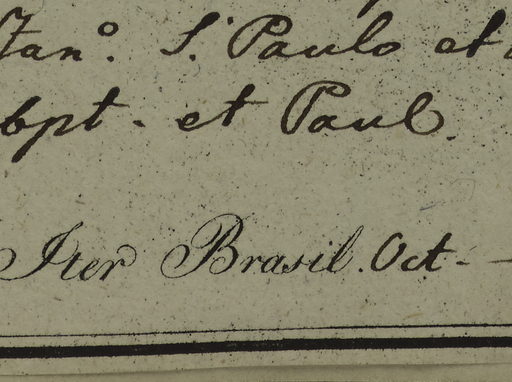 Janº. S. Paulo et
bpt. et Paul.
Iter Brasil. Oct-